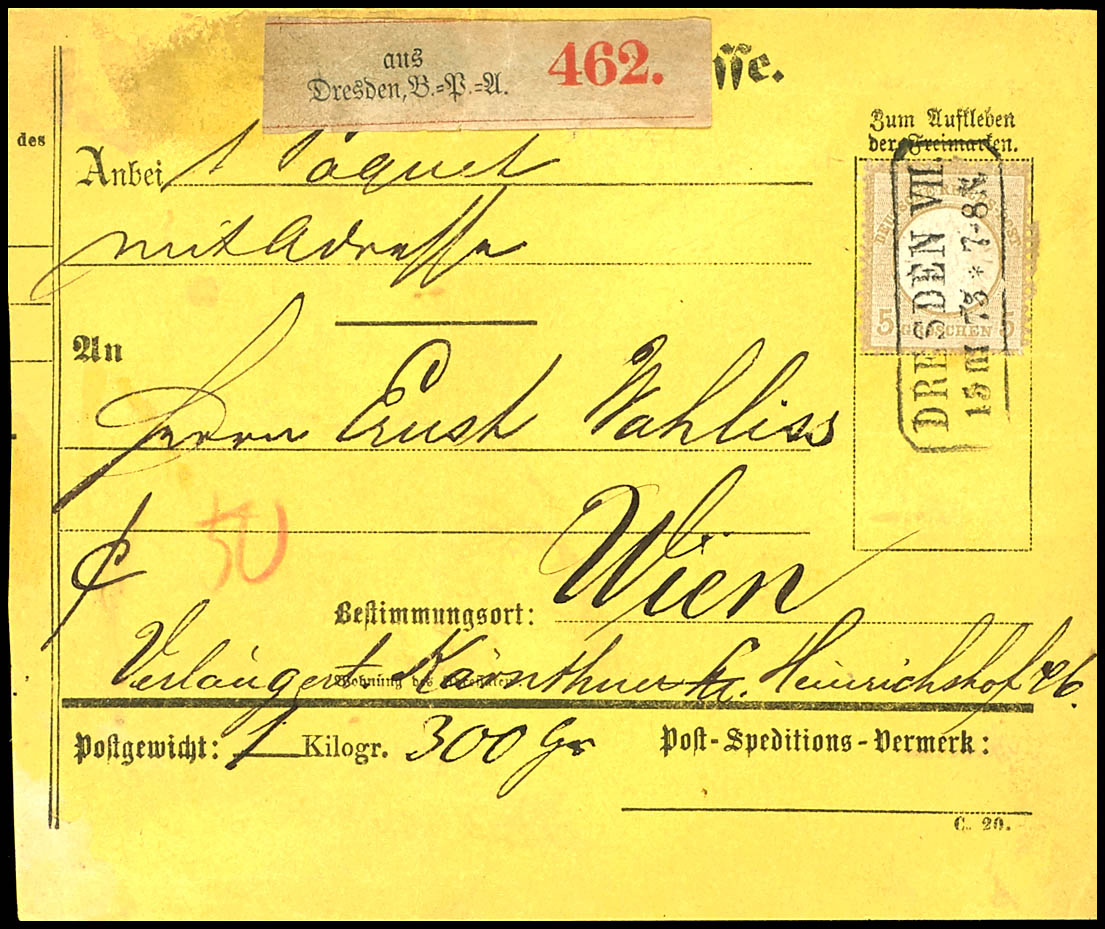 aus
Dresden, B.=P.=A. 462.
sse.
des
Zum Aufkleben
der Freimarken.
Anbei 1 Paquet
mit Adresse
DEUTSCHE REICHSPOST
5 GROSCHEN 5
DRESDEN VII.
15 III 73 * 7-8N
An
Herrn Ernst Wahliss
50
Bestimmungsort: Wien
Wohnung des Adressaten:
Verlängert Kärnthner Heinrichshof
Postgewicht: 1 Kilogr. 300 Gr
Post-Speditions-Vermerk:
C. 20.